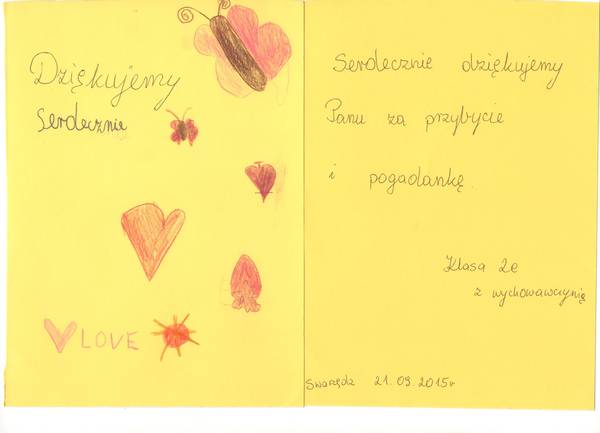 Dziękujemy
Serdecznie
LOVE
Serdecznie dziękujemy
Panu za przybycie
i pogadankę.
Klasa 2e
z wychowawczynią
Swarzędz 21.09.2015r